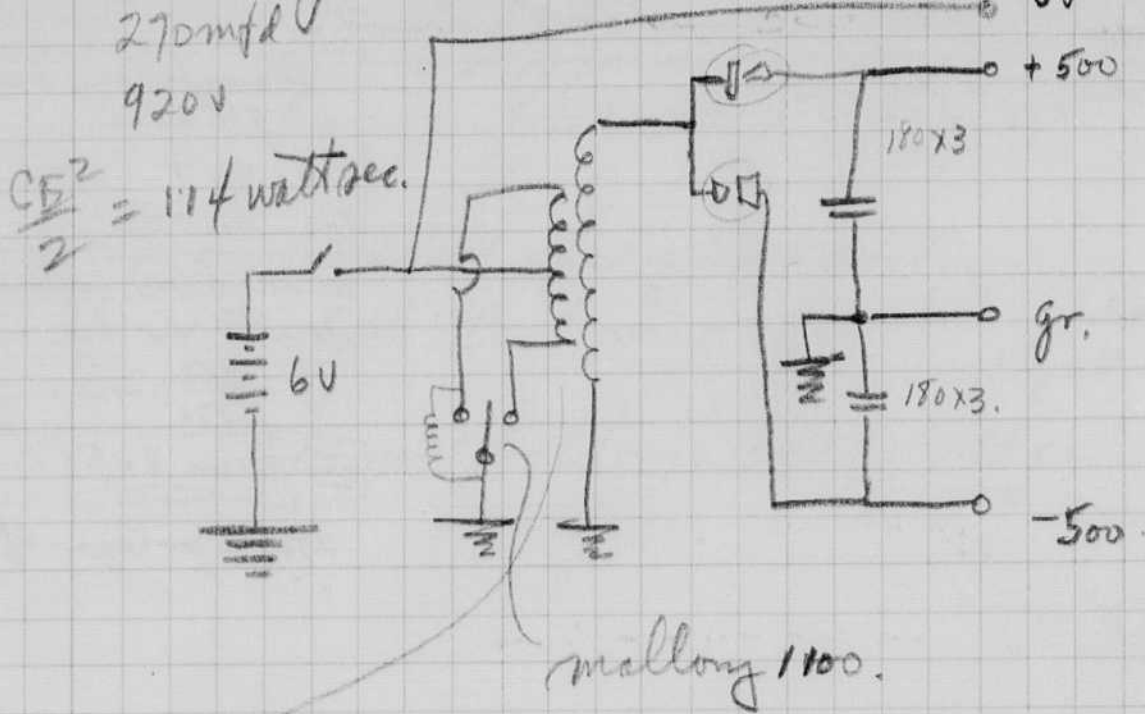 270 mfd
920 V
CE²/2 = 114 watt sec.
6V
+ 500
180x3
gr.
180x3.
-500
mallory 1100.